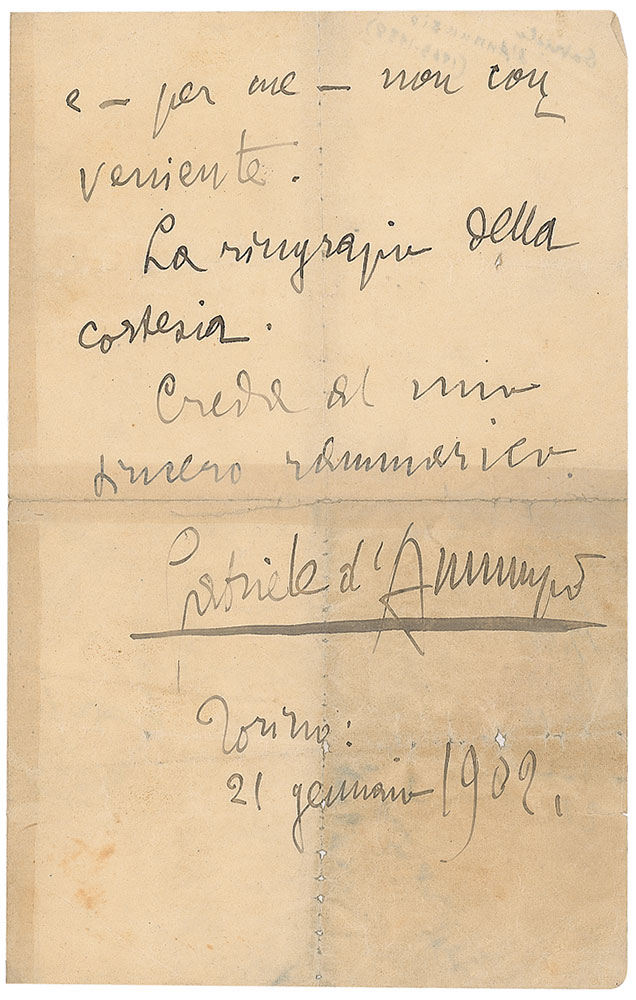 e — per me — non con=
veniente.
La ringrazio della
cortesia.
Creda al mio
sincero rammarico.
Gabriele d'Annunzio
Torino:
21 gennaio 1902.